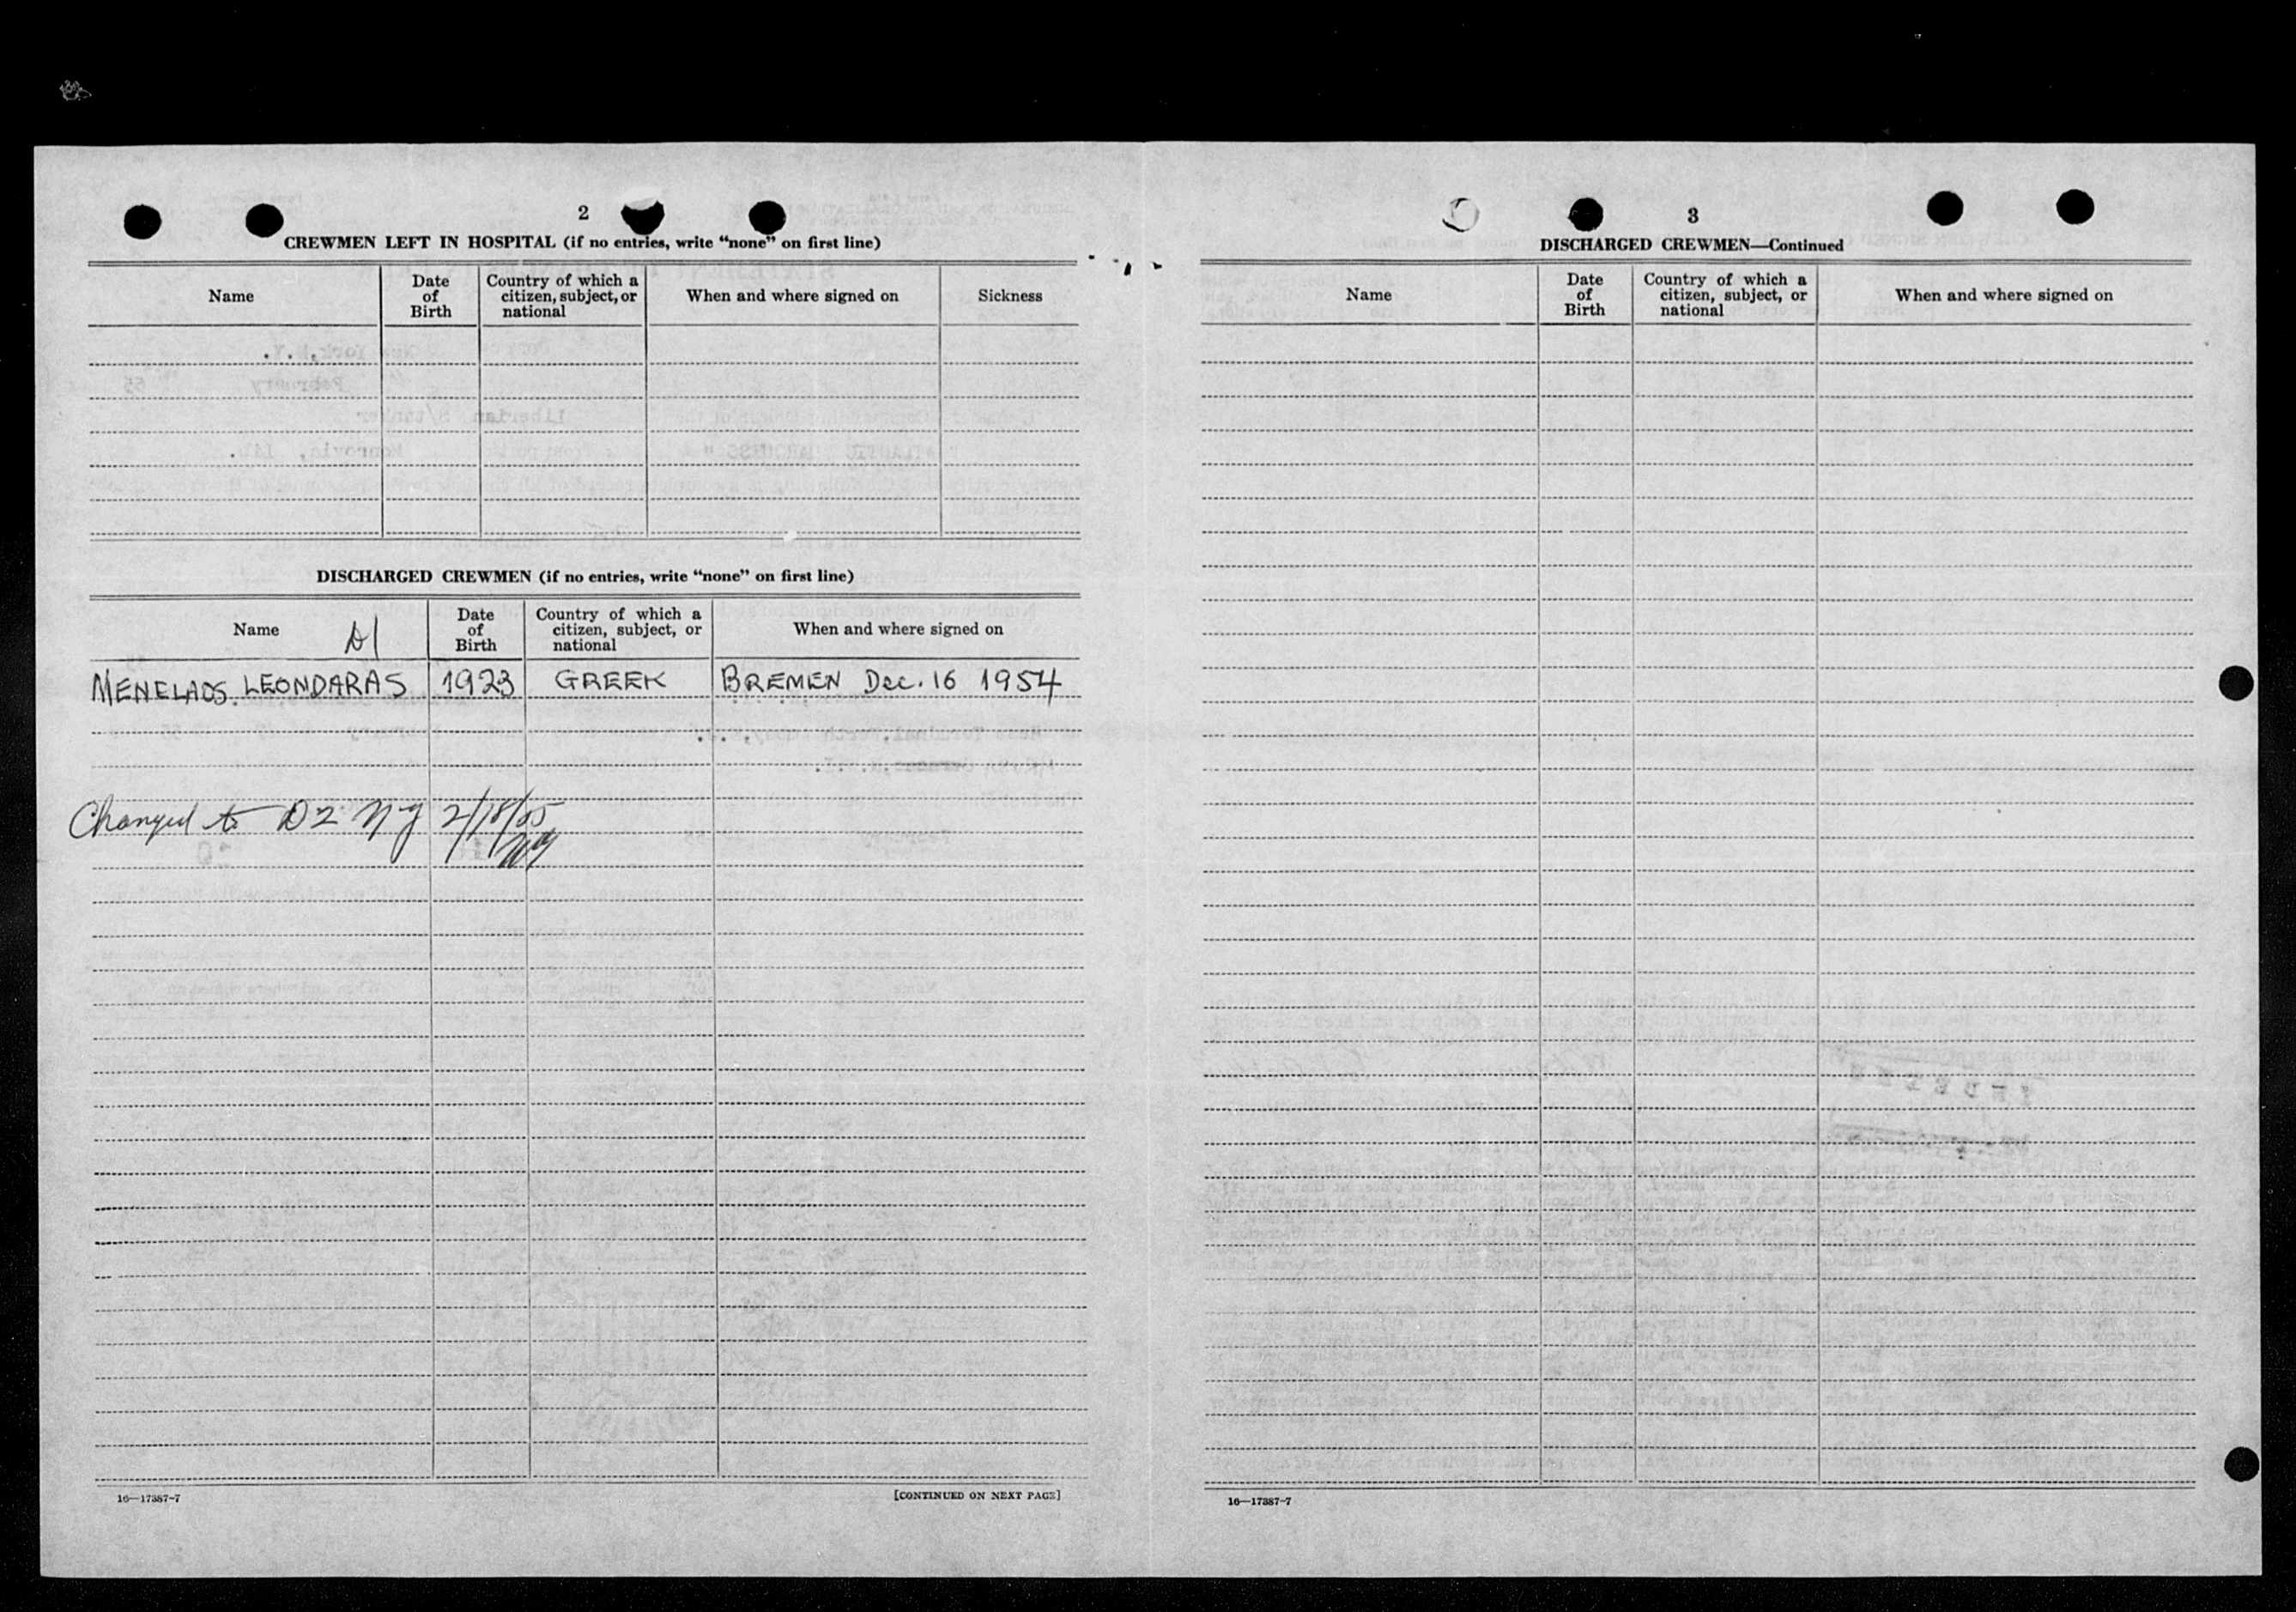 2
CREWMEN LEFT IN HOSPITAL (if no entries, write “none” on first line)
Name
Date of Birth
Country of which a citizen, subject, or national
When and where signed on
Sickness
DISCHARGED CREWMEN (if no entries, write “none” on first line)
Name D1
Date of Birth
Country of which a citizen, subject, or national
When and where signed on
MENELAOS. LEONDARAS 1923 GREEK BREMEN Dec. 16 1954
Changed to D2 NY 2/18/55
16—17387-7
[CONTINUED ON NEXT PAGE]
3
DISCHARGED CREWMEN—Continued
Name
Date of Birth
Country of which a citizen, subject, or national
When and where signed on
16—17387-7